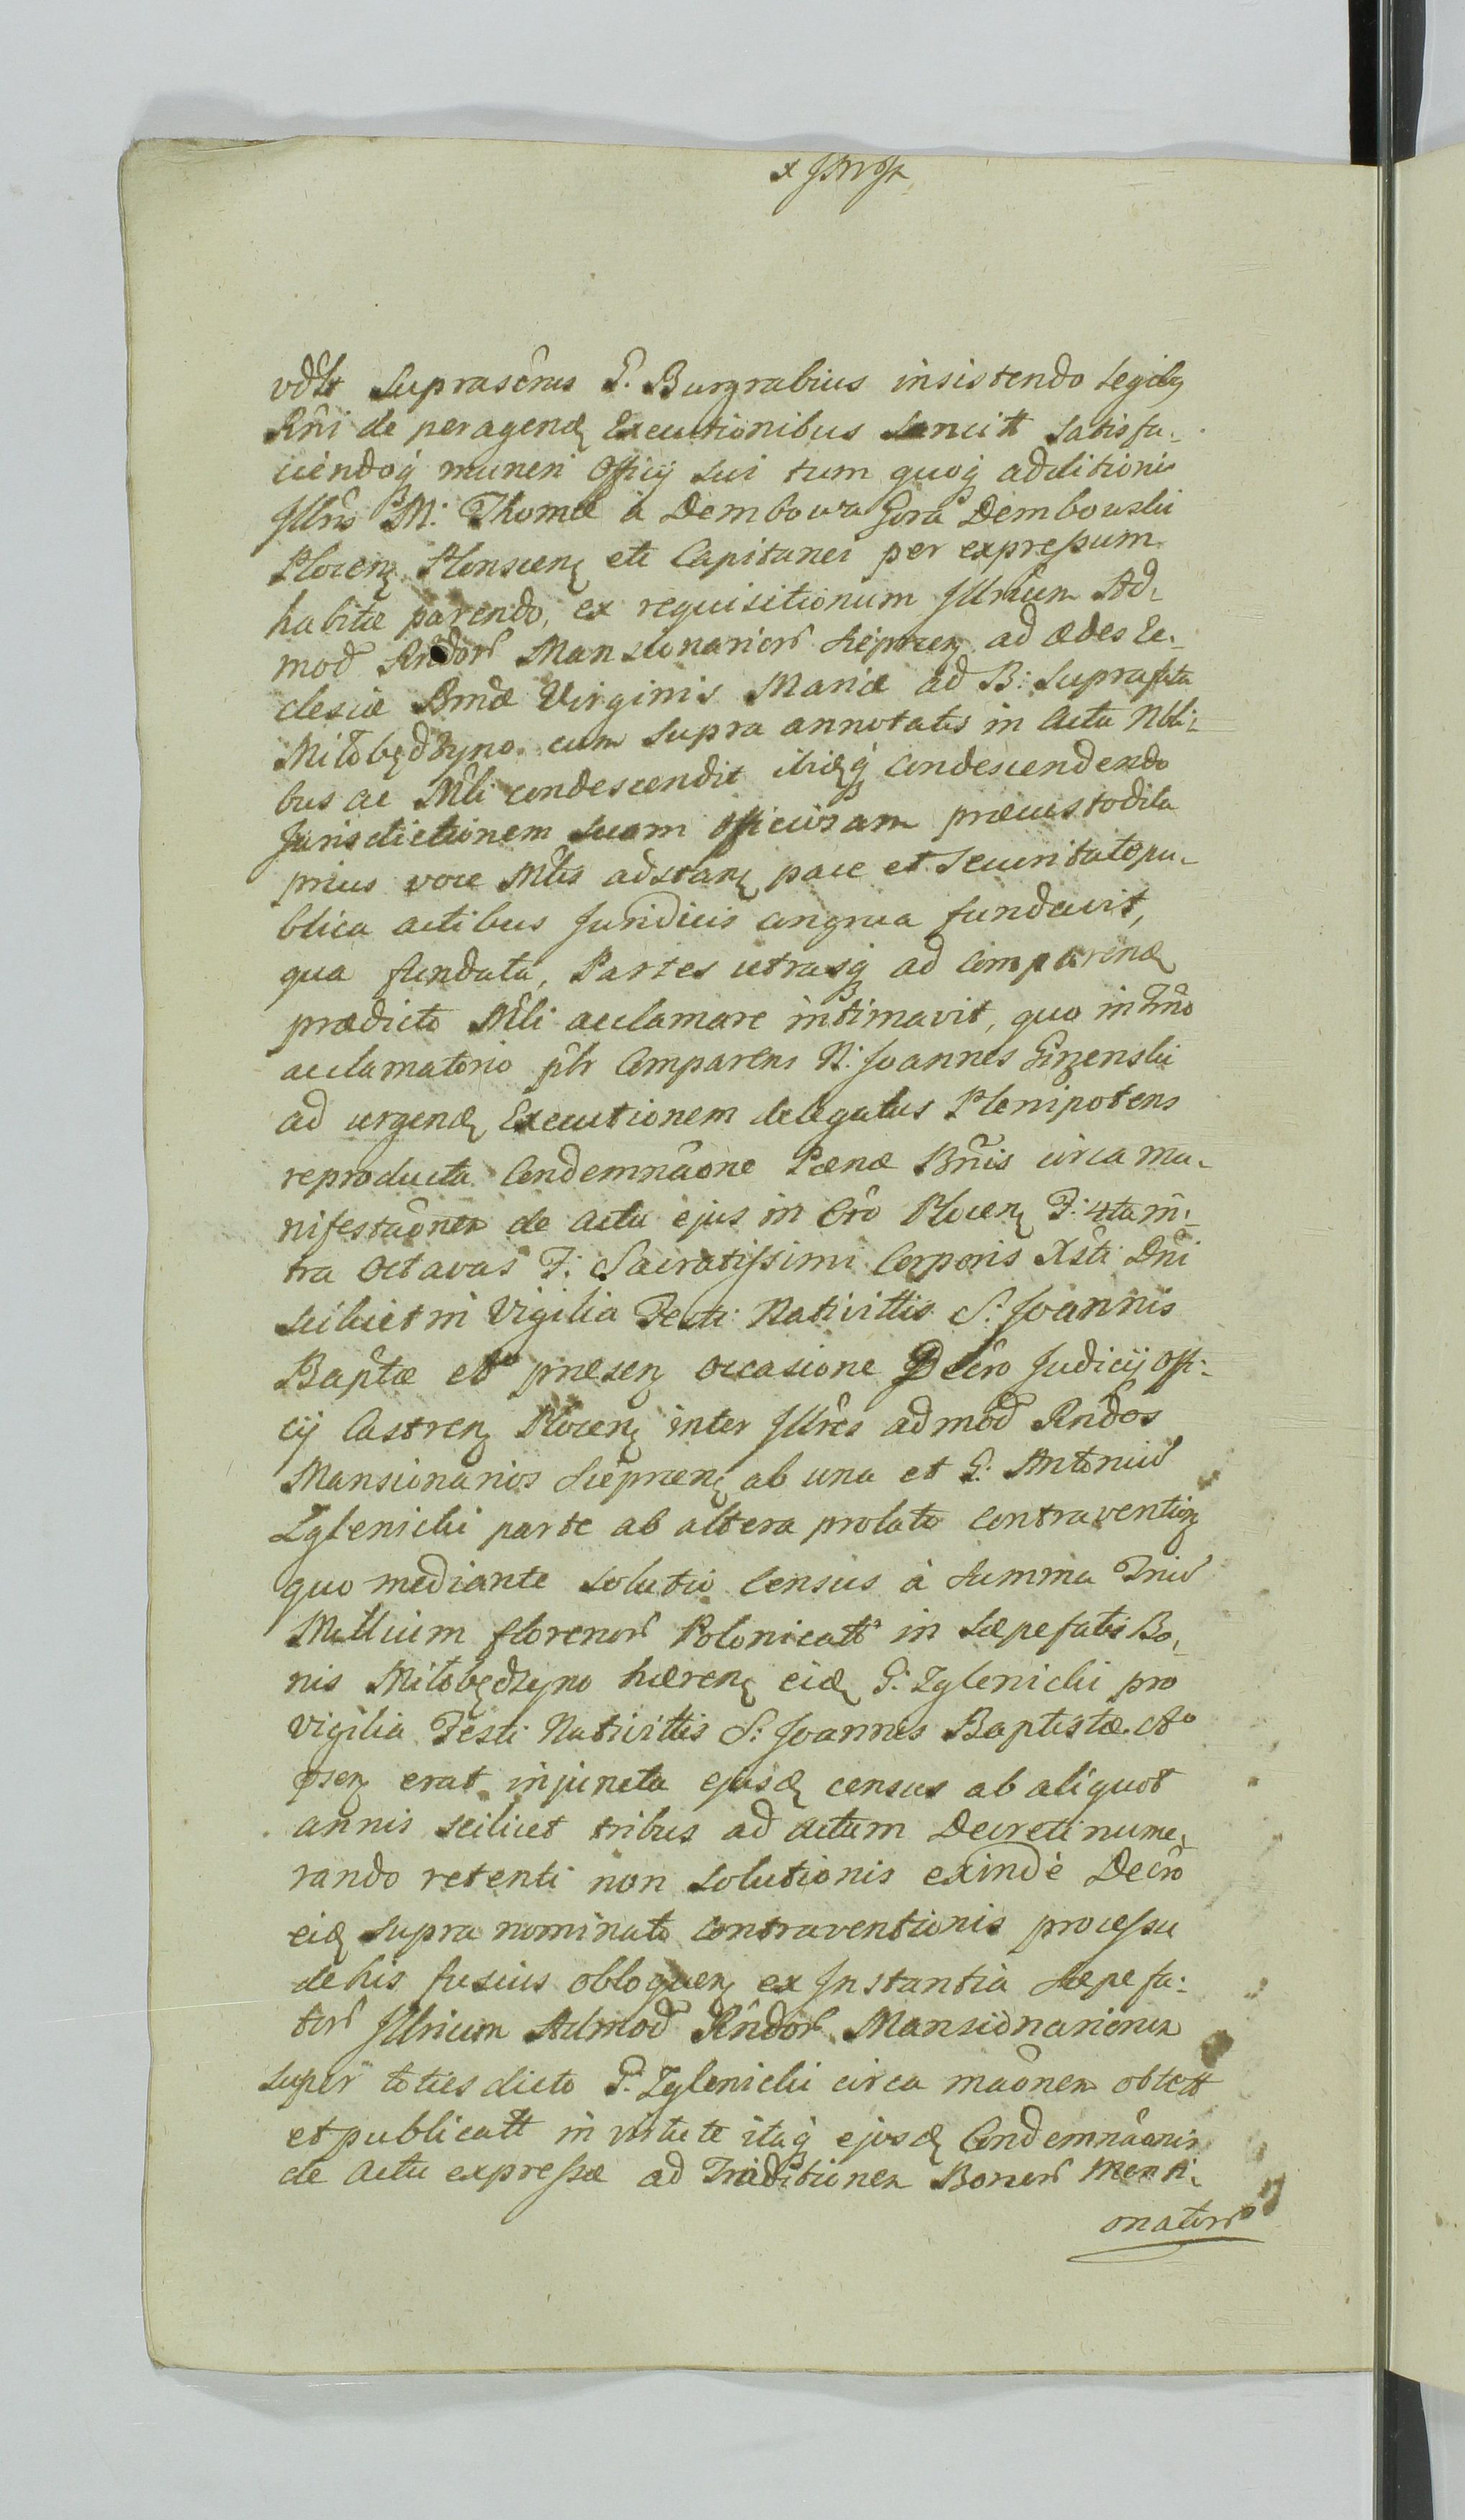 vdlt Suprascrus G. Burgrabius insistendo Legibq
Rñi de peragend Executionibus Sancitt Satisfa-
ciendoq muneri Officij Sui tum quoq additionis
Jllris M: Thomæ à Dembowa Gora Dembowski
Plocen Plonscen etc Capitanei per expressum
habitæ parendo, ex requisitionum Jllrium Ad-
mod Rndor Mansionarior Sieprcen ad Ædes Ec-
clesiæ Bmæ Virginis Mariæ ad B: Suprafata
Miłobędzyno cum Supra annotatis in Actu Nbli-
bus ac Mli condescendit ibidq condescendendo
Jurisdictionem Suam Officiosam præcustodita
prius voce Mlis adstan pace et Securitate pu-
blica actibus Juridicis congrua fundavit,
qua fundata, Partes utrasq ad Comparend
prædicto Mli acclamare intimavit, quo in Tmno
acclamatorio plr Comparens N: Joannes Ginzenski
ad urgend Executionem delegatus Plenipotens
reproducta Condemnaone Pænæ Bnis circa ma-
nifestaonen de actu ejus in Cro Plocen F: 4ta in-
tra Octavas F: Sacratissimi Corporis Xsti Dni
scilicet in Vigilia Festi Nativittis S. Joannis
Baptæ eto præsen occasione Decro Judicij Offi-
cij Castren Plocen inter Jllres admod Rndos
Mansionarios Sieprcen ab una et G. Antonium
Zglenicki parte ab altera prolato contravention
quo mediante Solutio Census à Summa Trium
Millium florenor Polonicatt in Sæpefatis Bo-
nis Miłobędzyno hæren eid G. Zglenicki pro
Vigilia Festi Nativittis S: Joannis Baptistæ eto
psen erat injuncta ejusd census ab aliquot
annis scilicet tribus ad actum Decreti nume-
rando retenti non Solutionis exindè Decro
eid Supra nominato Contraventionis processu
de his fusius obloquen ex Jnstantia Sæpefa-
tor Jllrium Admod Rndor Mansionarionen
Super toties dicto G. Zglenicki circa maonen obtett
et publicatt in virtute itaq ejusd Condemnaonis
de Actu expressæ ad Traditionen Bonor Menti-
onator